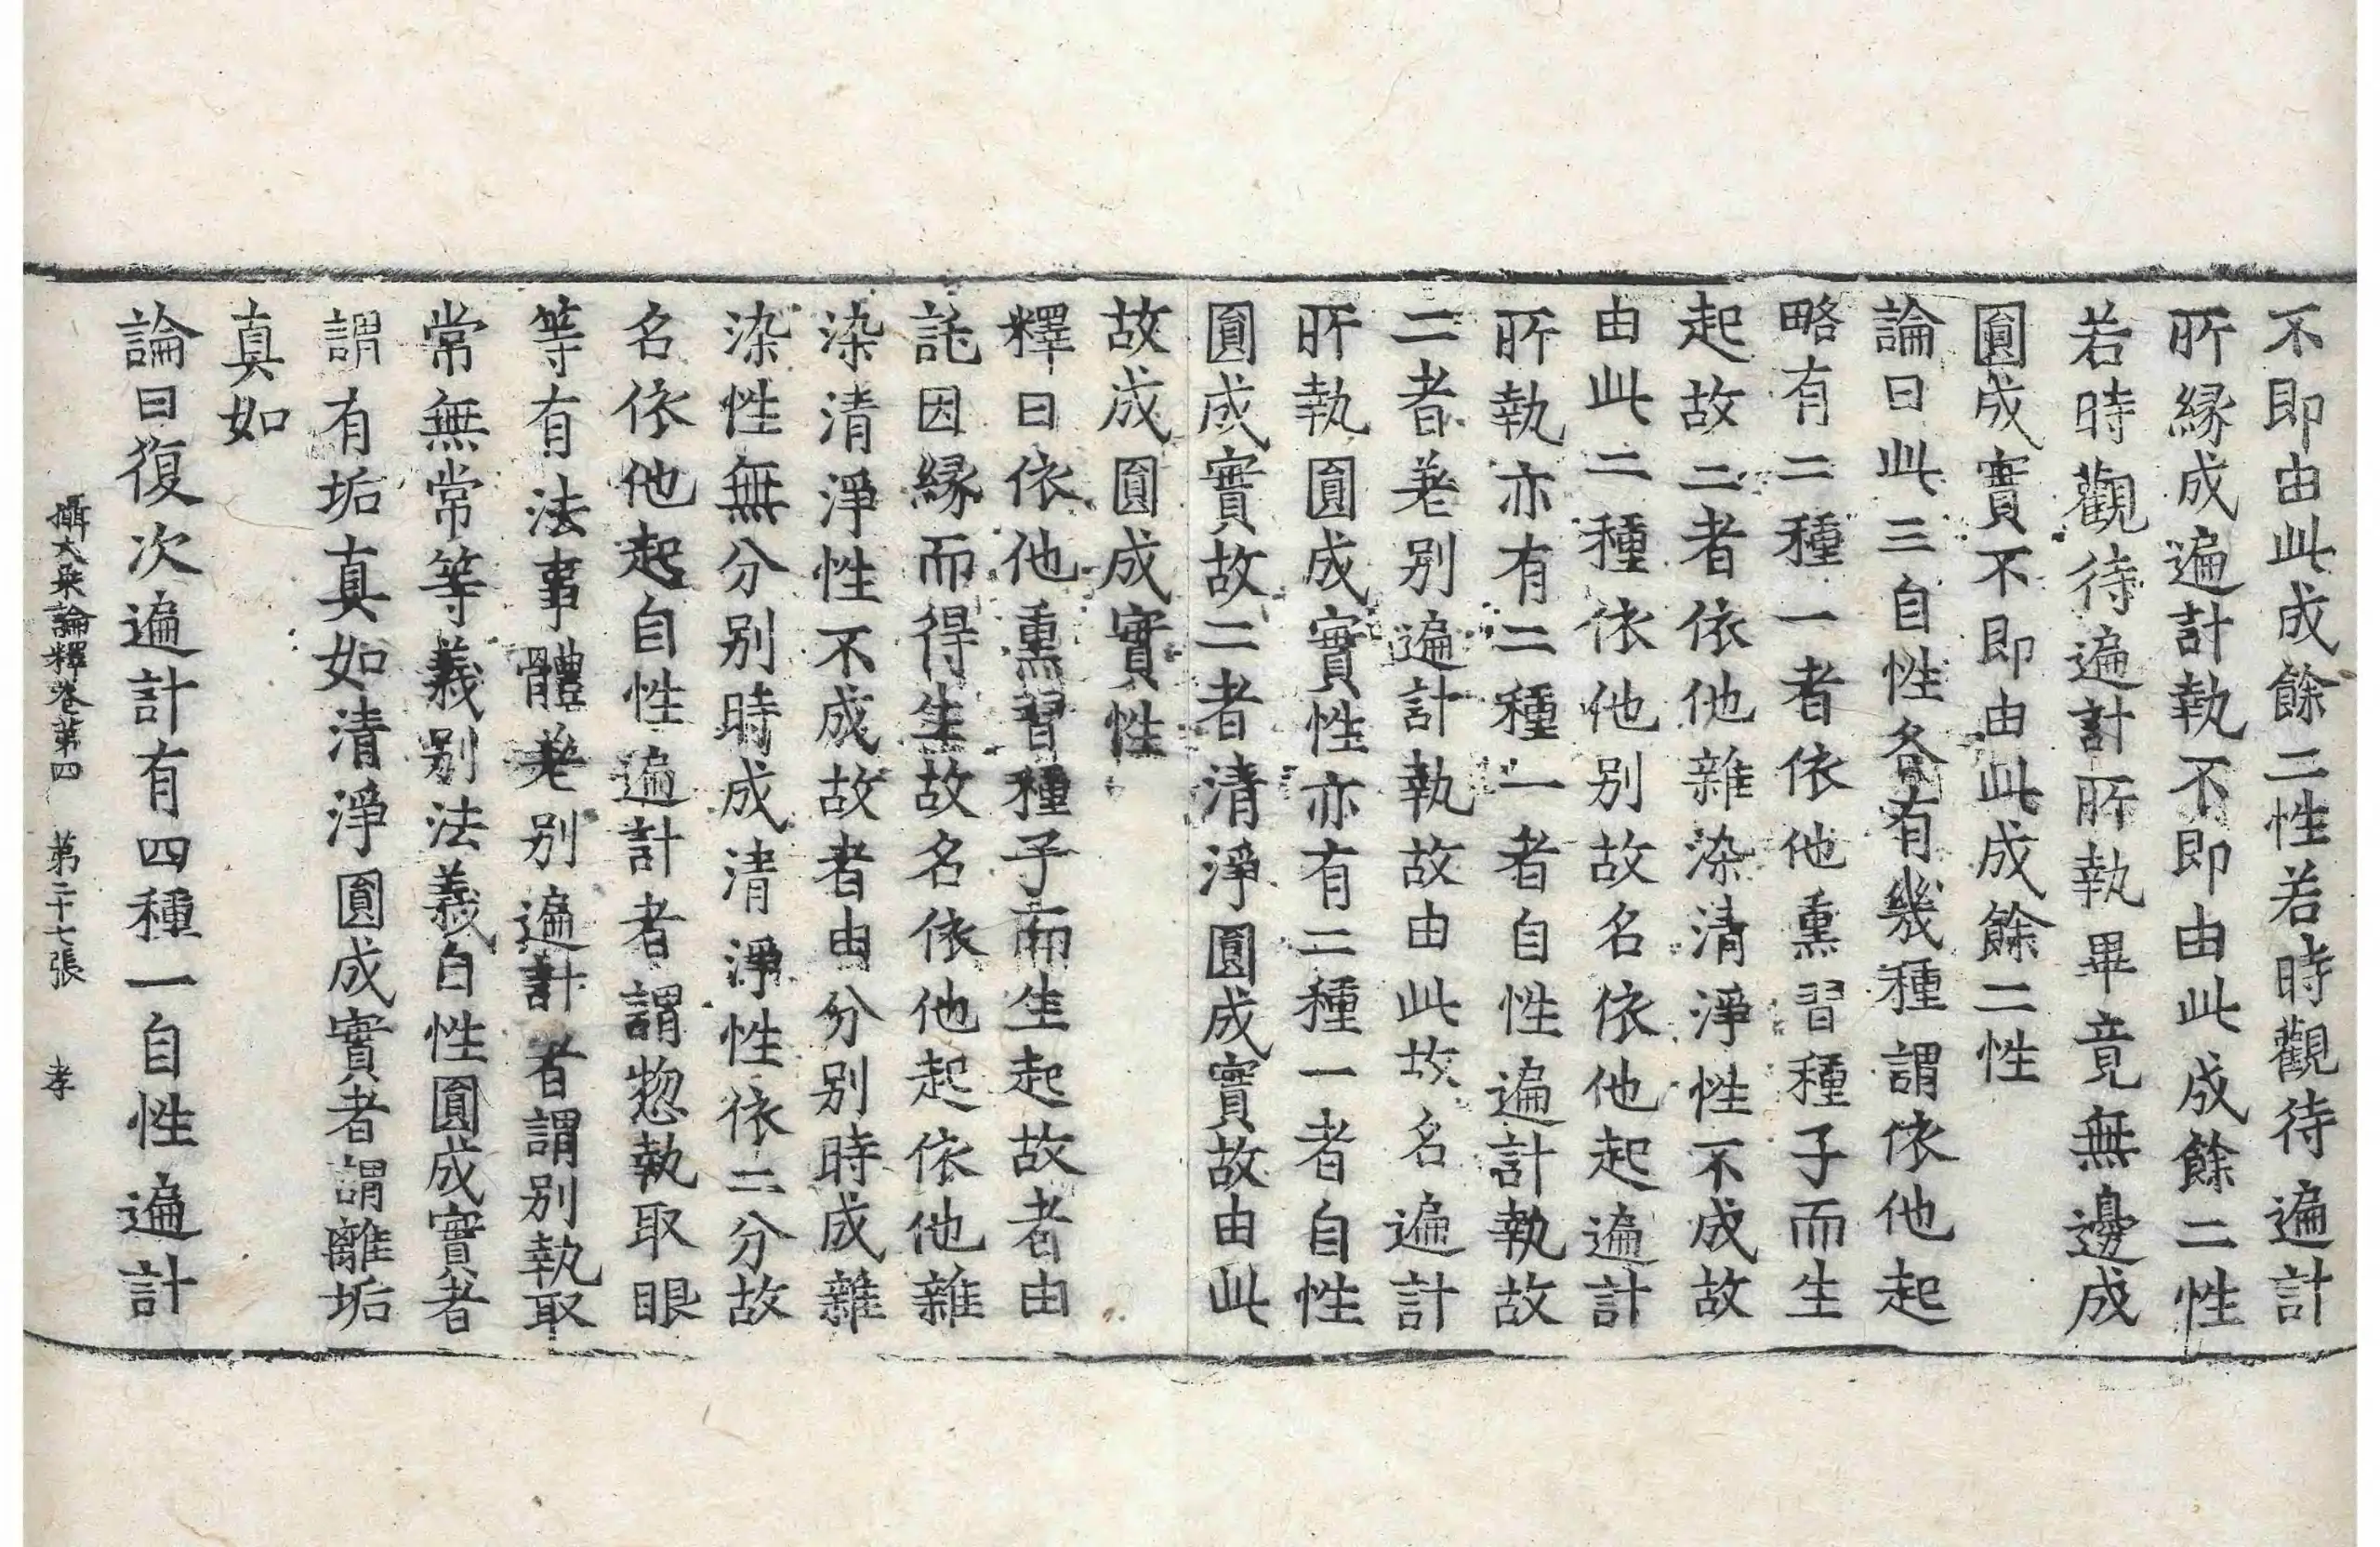 不即由此成餘二性若時觀待遍計
所緣成遍計執不即由此成餘二性
若時觀待遍計所執畢竟無邊成
圓成實不即由此成餘二性
論曰此三自性各有幾種謂依他起
略有二種一者依他熏習種子而生
起故二者依他雜染清淨性不成故
由此二種依他別故名依他起遍計
所執亦有二種一者自性遍計執故
二者差別遍計執故由此故名遍計
所執圓成實性亦有二種一者自性
圓成實故二者清淨圓成實故由此
故成圓成實性
釋曰依他熏習種子而生起故者由
託因緣而得生故名依他起依他雜
染清淨性不成故者由分別時成雜
染性無分別時成清淨性依二分故
名依他起自性遍計者謂惣執取眼
等有法事體差別遍計者謂別執取
常無常等義別法義自性圓成實者
謂有垢真如清淨圓成實者謂離垢
真如
論曰復次遍計有四種一自性遍計
攝大乘論釋卷第四 第二十七張 孝